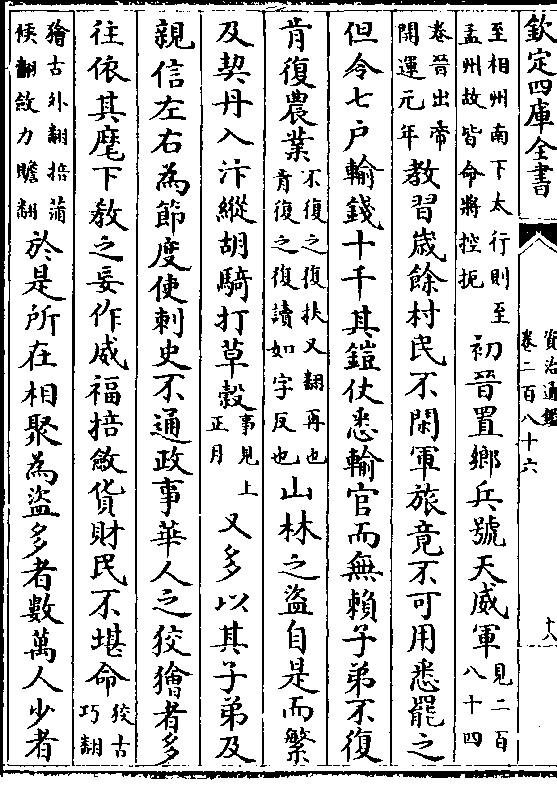 欽定四庫全書
資治通鑑
卷二百八十六
十八
至相州南下太行則至
孟州故皆命將控扼
初晉置鄉兵號天威軍
見二百八十四
卷晉出帝
開運元年
教習歲餘村民不閑軍旅竟不可用悉罷之
但令七户輸錢十千其鎧仗悉輸官而無賴子弟不復
肯復農業
不復之復扶又翻再也
肯復之復讀如字反也
山林之盜自是而繁
及契丹入汴縱胡騎打草穀
事見上
正月
又多以其子弟及
親信左右為節度使刺史不通政事華人之狡獪者多
往依其麾下教之妄作威福掊斂貨財民不堪命
狡古
巧翻
獪古外翻掊蒲
侯翻斂力贍翻
於是所在相聚為盜多者數萬人少者